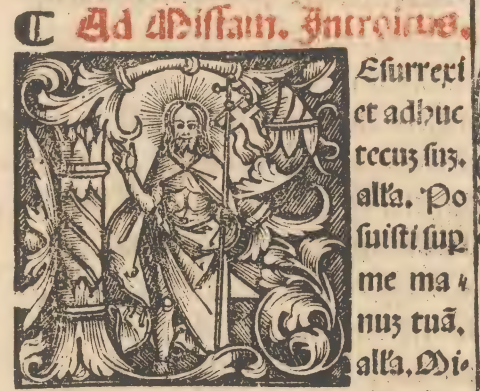 ¶ Ad Missam. Introitus.
REsurrexi
et adhuc
tecuȝ suȝ.
alľa. Po
suisti suꝑ
me ma⸗
nuȝ tuã.
alľa. Mi⸗